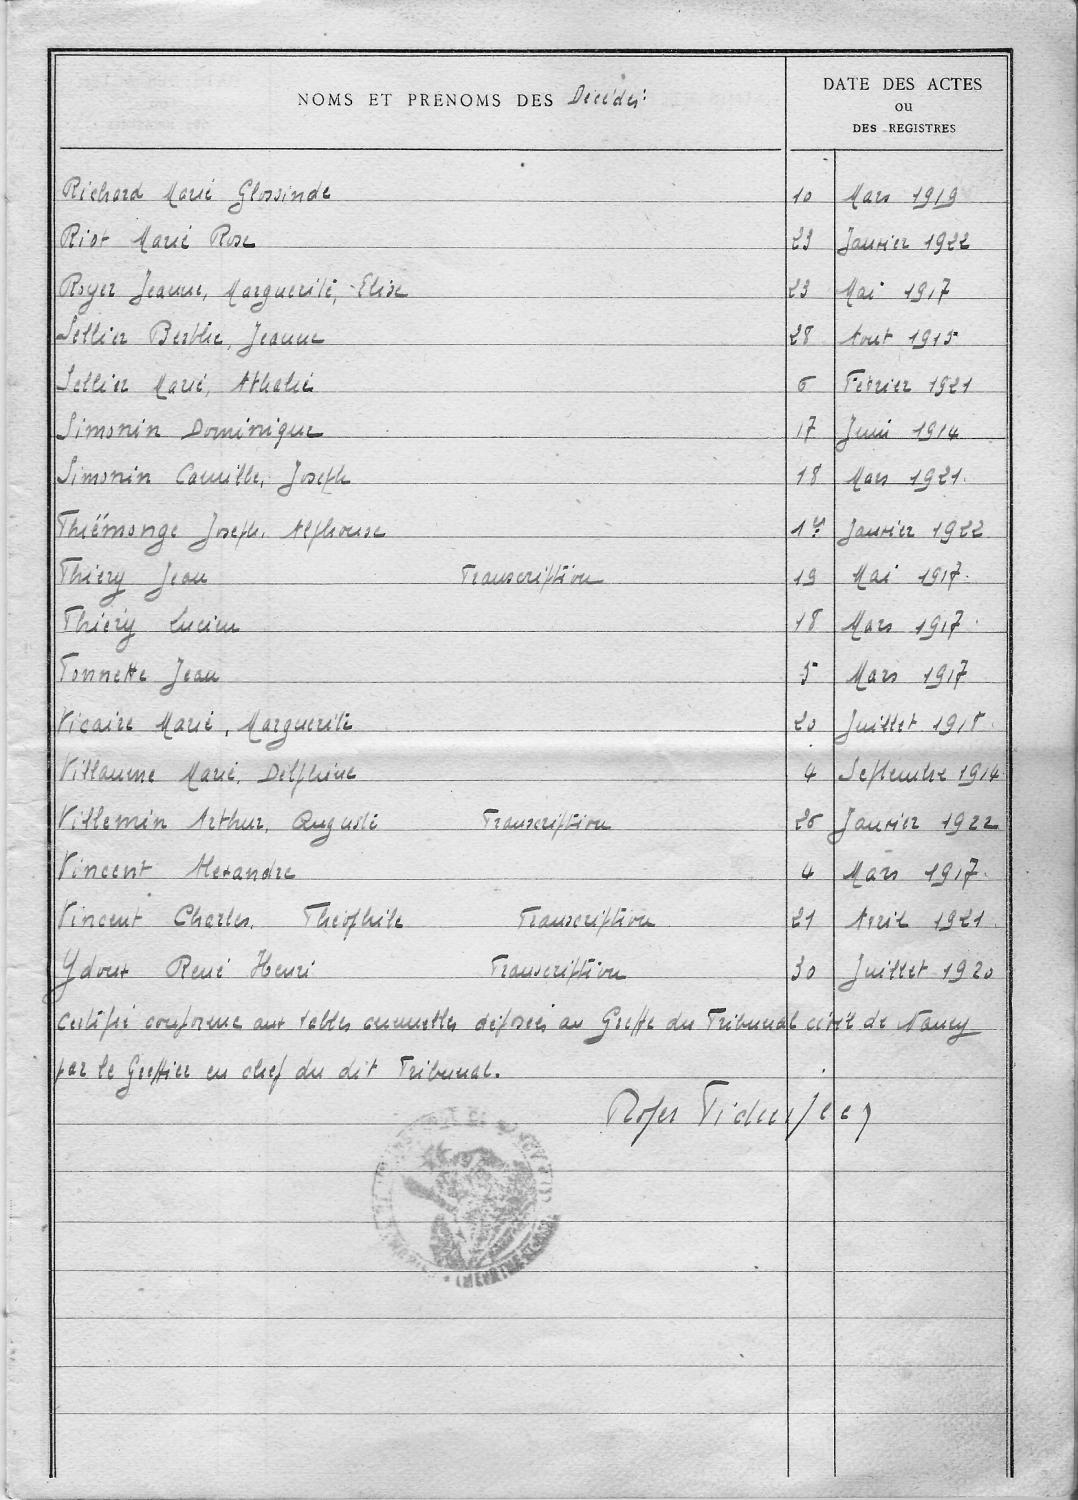 NOMS ET PRENOMS DES Décédés
DATE DES ACTES
ou
DES REGISTRES
Richard Marie Glossinde 10 Mars 1919
Riot Marie Rose 23 Janvier 1922
Royer Jeanne, Marguerite, Elise 23 Mai 1917
Sellier Berthe, Jeanne 28 Aout 1915
Sellier Marie, Athalie 6 Février 1921
Simonin Dominique 17 Juin 1914
Simonin Camille, Joseph 18 Mars 1921
Thiémonge Joseph, Alphonse 1er Janvier 1922
Thiéry Jean Transcription 19 Mai 1917
Thiéry Lucien 18 Mars 1917
Tonnette Jean 5 Mars 1917
Vicaire Marie, Marguerite 20 Juillet 1918
Villaume Marie, Delphine 4 Septembre 1914
Villemin Arthur, Auguste Transcription 26 Janvier 1922
Vincent Alexandre 4 Mars 1917
Vincent Charles, Théophile Transcription 21 Avril 1921
Ydoux René Henri Transcription 30 Juillet 1920
Certifié conforme aux tables annuelles déposées au Greffe du Tribunal civil de Nancy
par le Greffier en chef du dit Tribunal.